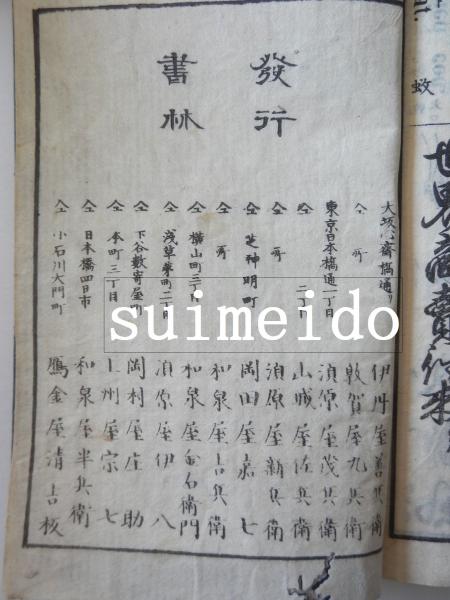 發行
書林
大坂心斎橋通り 伊丹屋善兵衛
仝 所 敦賀屋九兵衛
東京日本橋通一丁目 須原屋茂兵衛
仝 二丁目 山城屋佐兵衛
仝 所 須原屋新兵衛
仝 芝神明町 岡田屋嘉七
仝 所 和泉屋吉兵衛
仝 横山町三丁目 和泉屋金右衛門
仝 浅草茅町二丁目 須原屋伊八
仝 下谷數寄屋町 岡村屋庄助
仝 本町三丁目 上州屋宗七
仝 日本橋四日市 和泉屋半兵衛
仝 小石川大門町 鴈金屋清吉板
世界商賣往来
suimeido